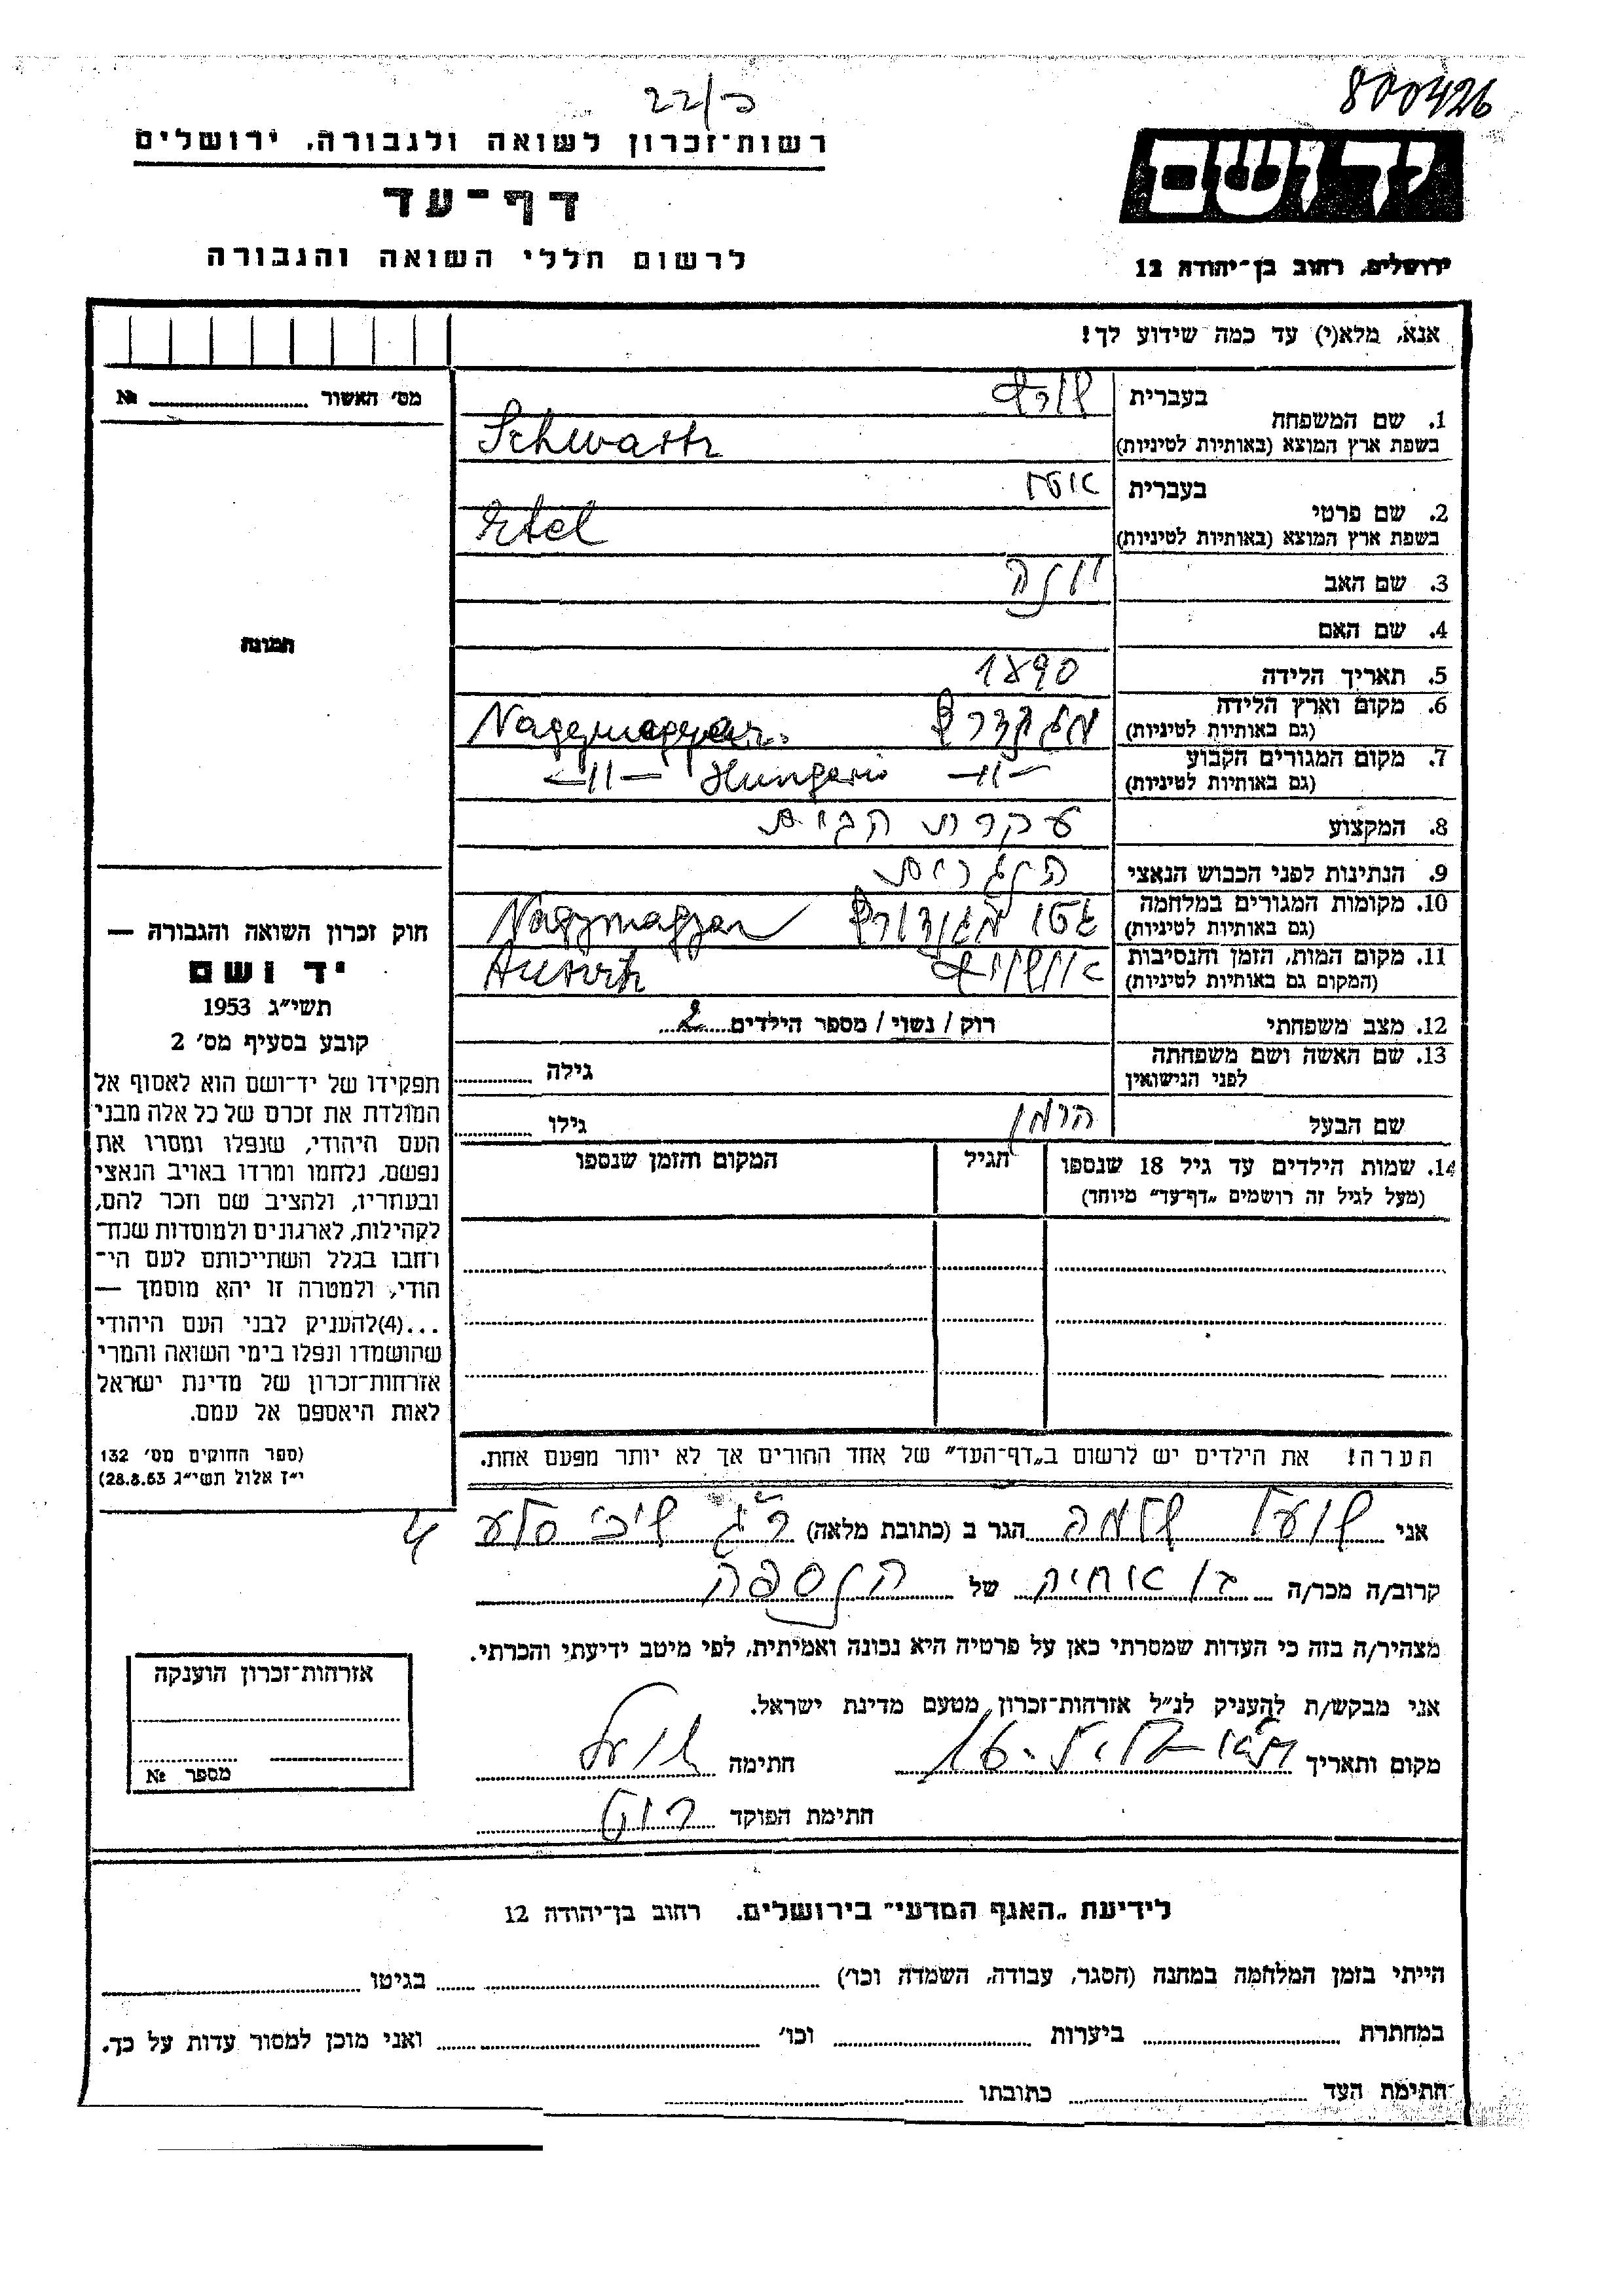 800426
22/כ
רשות־זכרון לשואה ולגבורה, ירושלים
יד ושם
דף־עד
לרשום חללי השואה והגבורה
ירושלים, רחוב בן־יהודה 12
אנא, מלא(י) עד כמה שידוע לך!
מס׳ האשור № 
1. שם המשפחה
בעברית שורץ
בשפת ארץ המוצא (באותיות לטיניות) Schwartz
2. שם פרטי
בעברית אטל
בשפת ארץ המוצא (באותיות לטיניות) Etel
3. שם האב יונה
4. שם האם
תמונה
5. תאריך הלידה 1890
6. מקום וארץ הלידה
(גם באותיות לטיניות) Nagymagyar.
7. מקום המגורים הקבוע
(גם באותיות לטיניות) —״— Hungaria —״—
8. המקצוע עקרת הבית
9. הנתינות לפני הכבוש הנאצי הונגרית
10. מקומות המגורים במלחמה
(גם באותיות לטיניות) גטו Nagymagyar
11. מקום המות, הזמן והנסיבות
(המקום גם באותיות לטיניות) אושויץ
12. מצב משפחתי רוק / נשוי / מספר הילדים 2
13. שם האשה ושם משפחתה
לפני הנישואין גילה
שם הבעל הרמן גילו
14. שמות הילדים עד גיל 18 שנספו הגיל המקום והזמן שנספו
(מעל לגיל זה רושמים „דף־עד״ מיוחד)
חוק זכרון השואה והגבורה —
יד ושם
תשי״ג 1953
קובע בסעיף מס׳ 2
תפקידו של יד־ושם הוא לאסוף אל
המולדת את זכרם של כל אלה מבני
העם היהודי, שנפלו ומסרו את
נפשם, נלחמו ומרדו באויב הנאצי
ובעוזריו, ולהציב שם וזכר להם,
לקהילות, לארגונים ולמוסדות שנח־
רחבו בגלל השתייכותם לעם הי־
הודי, ולמטרה זו יהא מוסמך —
...(4)להעניק לבני העם היהודי
שהושמדו ונפלו בימי השואה והמרי
אזרחות־זכרון של מדינת ישראל
לאות היאספם אל עמם.
(ספר החוקים מס׳ 132
י״ז אלול תשי״ג 28.8.53)
הערה! את הילדים יש לרשום ב„דף־העד״ של אחד ההורים אך לא יותר מפעם אחת.
אני שועל שלמה הגר ב (כתובת מלאה) ר״ג שיבי סלע 4
קרוב/ה מכר/ה בן אחיה של הנספה
מצהיר/ה בזה כי העדות שמסרתי כאן על פרטיה היא נכונה ואמיתית, לפי מיטב ידיעתי והכרתי.
אני מבקש/ת להעניק לנ״ל אזרחות־זכרון מטעם מדינת ישראל.
מקום ותאריך חתימה שועל
חתימת הפוקד
אזרחות־זכרון הוענקה
מספר №
לידיעת „האגף המדעי״ בירושלים. רחוב בן־יהודה 12
הייתי בזמן המלחמה במחנה (הסגר, עבודה, השמדה וכו׳) בגיטו
במחתרת ביערות וכו׳ ואני מוכן למסור עדות על כך.
חתימת העד כתובתו